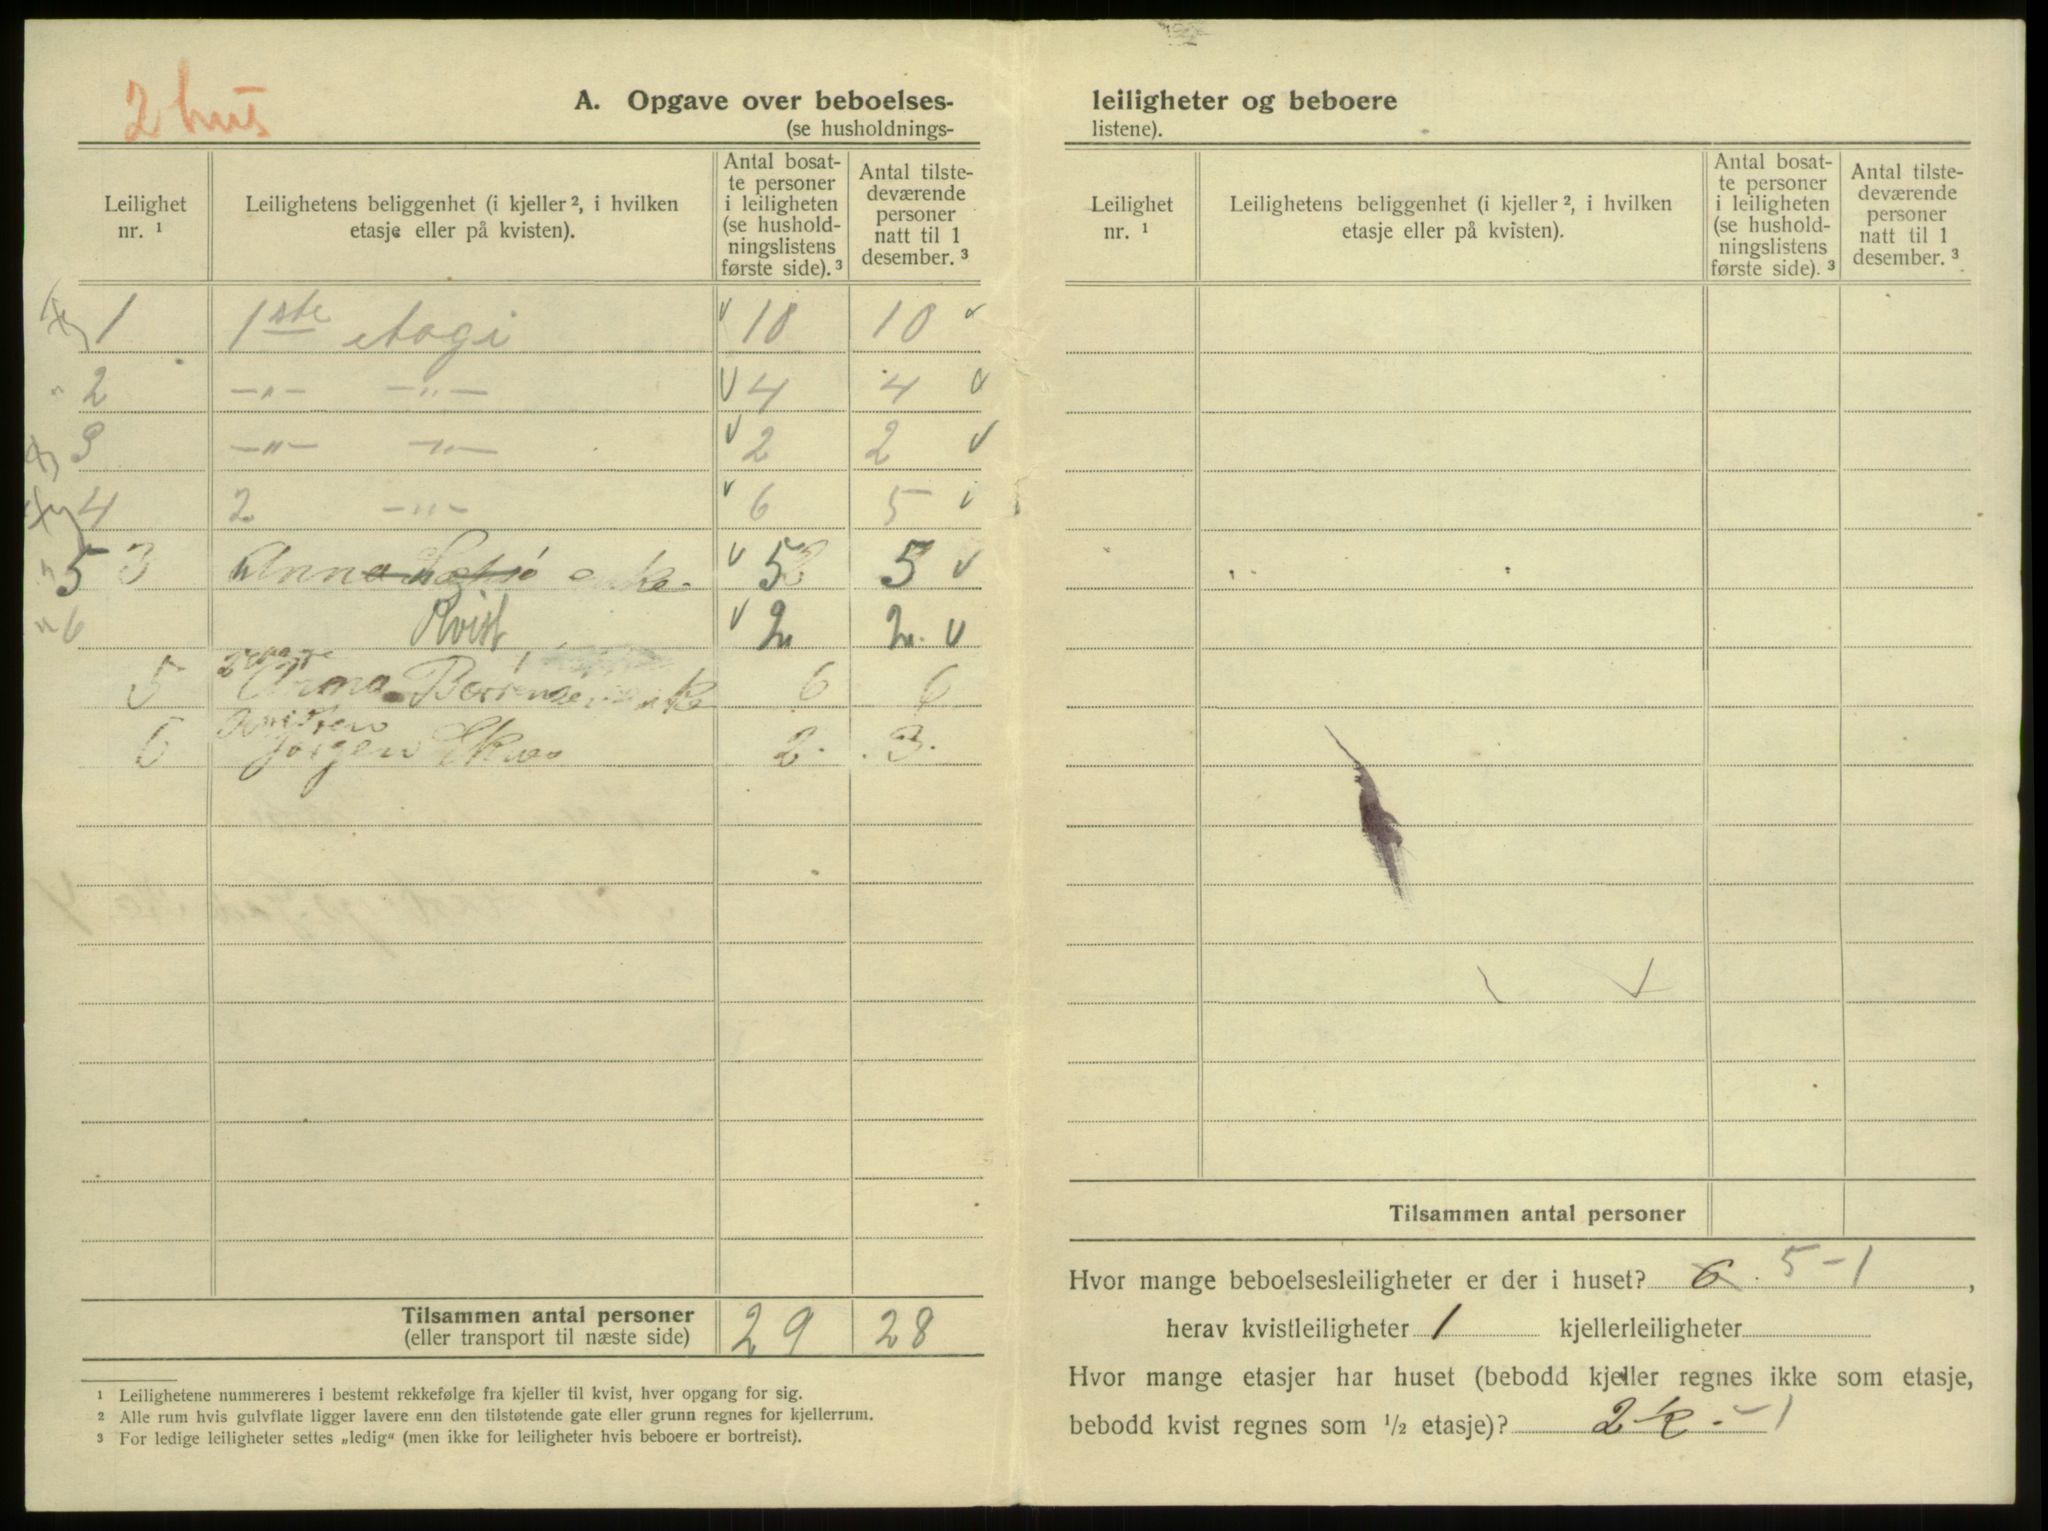 2 hus
A. Opgave over beboelses-
(se husholdnings-
Leilighet nr. ¹
Leilighetens beliggenhet (i kjeller ², i hvilken etasje eller på kvisten).
Antal bosatte personer i leiligheten (se husholdningslistens første side). ³
Antal tilstedeværende personer natt til 1 desember. ³
1 1ste etagi 10 10
2 —„— —„— 4 4
3 —„— —„— 2 2
4 2 —„— 6 5
5 3 Anna enke 5 5
6 Kvist 2 2
5 Anna 6 6
6 Kvisten
Jørgen 2 3
Tilsammen antal personer 29 28
(eller transport til næste side)
¹ Leilighetene nummereres i bestemt rekkefølge fra kjeller til kvist, hver opgang for sig.
² Alle rum hvis gulvflate ligger lavere enn den tilstøtende gate eller grunn regnes for kjellerrum.
³ For ledige leiligheter settes „ledig“ (men ikke for leiligheter hvis beboere er bortreist).
leiligheter og beboere
listene).
Leilighet nr. ¹
Leilighetens beliggenhet (i kjeller ², i hvilken etasje eller på kvisten).
Antal bosatte personer i leiligheten (se husholdningslistens første side). ³
Antal tilstedeværende personer natt til 1 desember. ³
Tilsammen antal personer
Hvor mange beboelsesleiligheter er der i huset? 6 5-1,
herav kvistleiligheter 1 kjellerleiligheter
Hvor mange etasjer har huset (bebodd kjeller regnes ikke som etasje,
bebodd kvist regnes som ½ etasje)? 2 k. - 1